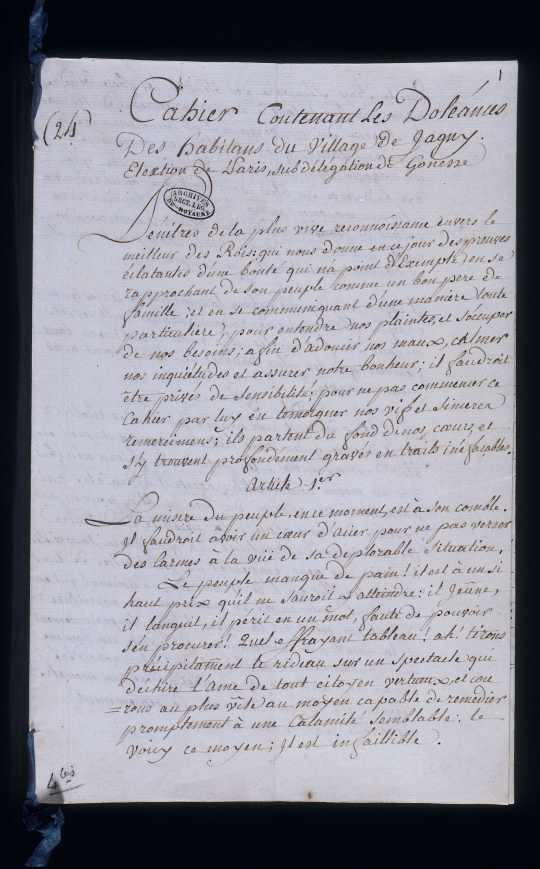 1
(24)
Cahier Contenant Les Doléances
Des habitans du Village de Jagny.
Election de Paris, subdélégation de Gonesse
ARCHIVES
SECT. LEG.
DU ROYAUME
Pénétrés de la plus vive reconnoissance envers le
meilleur des Rois; qui nous donne en ce jour des preuves
éclatantes d'une bonté qui n'a point d'Exemple; en se
rapprochant de son peuple comme un bon pere de
famille; et en se communiquant d'une maniere toute
particuliere, pour entendre nos plaintes, et s'occuper
de nos besoins; afin d'adoucir nos maux, calmer
nos inquiétudes et assurer notre bonheur; il faudroit
etre privés de sensibilité, pour ne pas commencer ce
Cahier par luy en temoigner nos vifs et sinceres
remerciemens; ils partent du fond de nos cœurs, et
s'y trouvent profondément gravés en traits inéfaçables.
Article 1.er
La misere du peuple, en ce moment, est à son comble.
Il faudroit avoir un cœur d'Acier pour ne pas verser
des larmes à la vüe de sa deplorable Situation.
Le peuple manque de pain! il est à un si
haut prix qu'il ne sauroit y atteindre; il Jeûne,
il languit, il perit en un mot, faute de pouvoir
s'en procurer! Quel effrayant tableau! ah! tirons
précipitament le rideau sur un Spectacle qui
déchire l'Ame de tout citoyen vertueux, et cou
=rons au plus vite au moyen capable de remedier
promptement à une Calamité Semblable: le
voicy ce moyen; Il est infaillible.